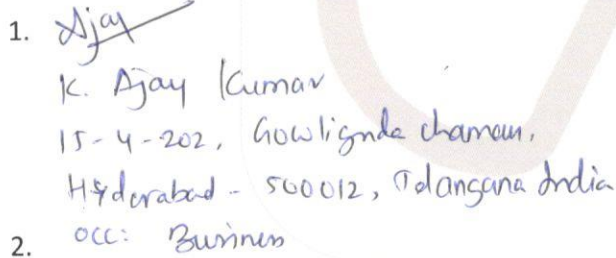 1. Ajay
K. Ajay Kumar
15-4-202, Gowliguda chaman,
Hyderabad - 500012, Telangana India
2. occ: Business